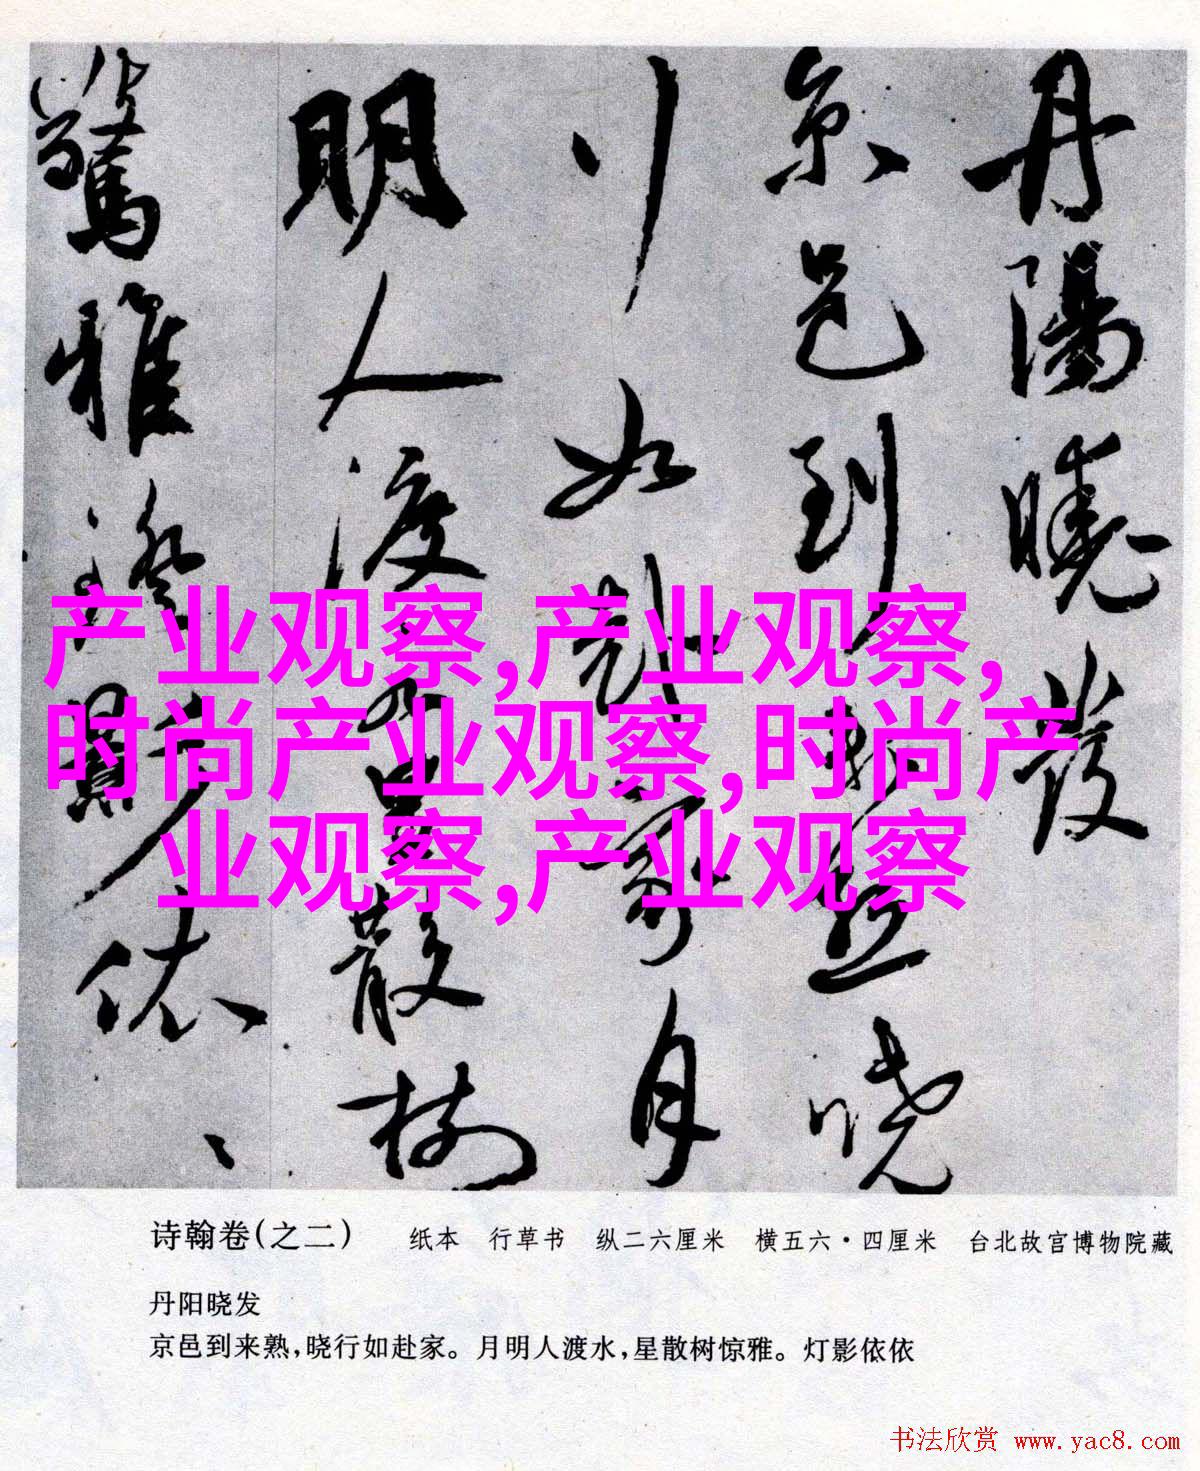 丹陽曉發
京邑到來熟曉
行如赴家月
明人渡水星散樹
驚雅燈影依、、
产业观察,产业观察,
时尚产业观察,时尚产
业观察,产业观察
诗翰卷(之二) 纸本 行草书 纵二六厘米 横五六·四厘米 台北故宫博物院藏
丹阳晓发
京邑到来熟,晓行如赴家。月明人渡水,星散树惊雅。灯影依依
书法欣赏 www.yac8.com